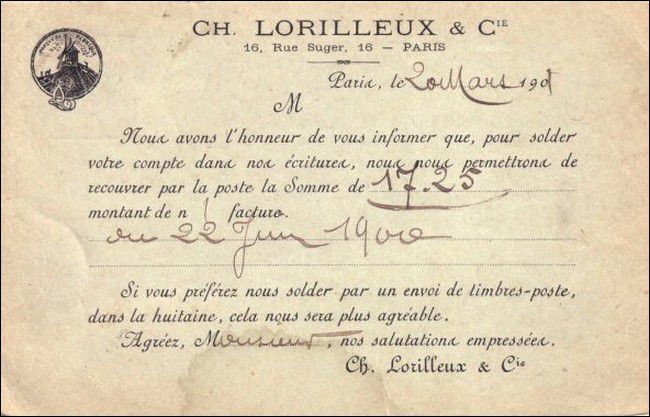 CH. LORILLEUX & CIE
16, Rue Suger, 16 — PARIS
Paris, le 20 Mars 1901
M
Nous avons l'honneur de vous informer que, pour solder
votre compte dans nos écritures, nous nous permettrons de
recouvrer par la poste la Somme de 17.25
montant de n/ facture.
du 22 Juin 1900
Si vous préférez nous solder par un envoi de timbres-poste,
dans la huitaine, cela nous sera plus agréable.
Agréez, Monsieur, nos salutations empressées.
Ch. Lorilleux & Cie